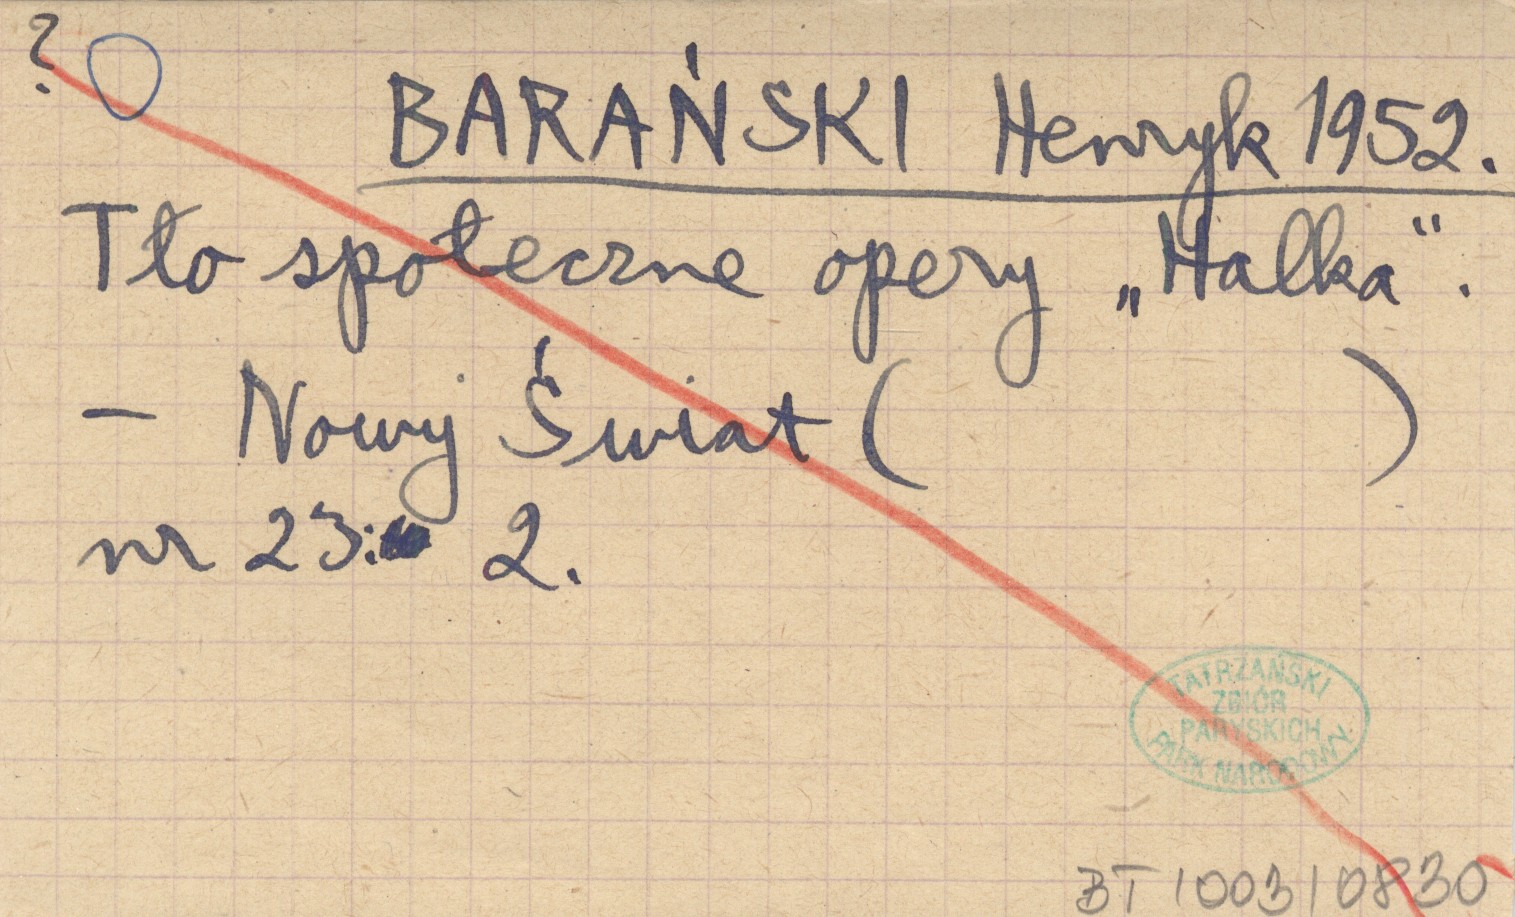 ?
BARAŃSKI Henryk 1952.
Tło społeczne opery „Halka”.
— Nowy Świat ( )
nr 23: 2.
TATRZAŃSKI
ZBIÓR
PARYSKICH
PARK NARODOWY
BT 1003 | 0830